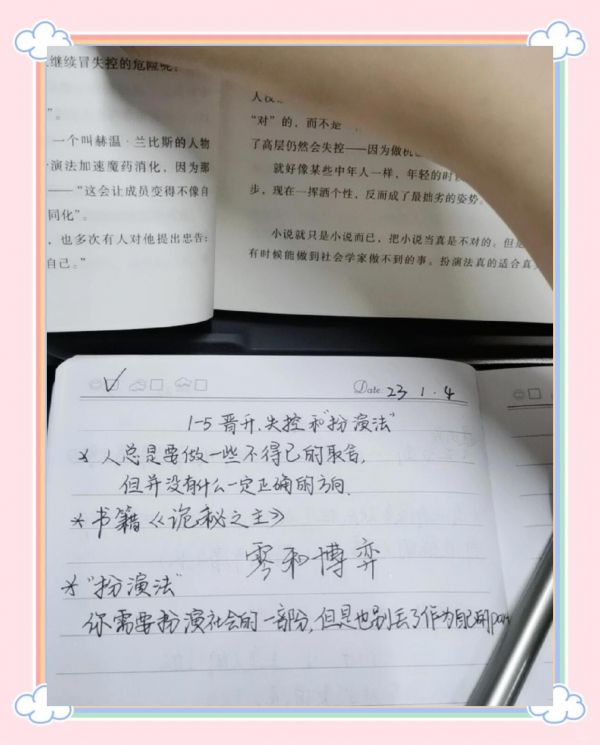 继续冒失控的危险呢？
”。
一个叫赫温·兰比斯的人物
演法加速魔药消化，因为那
——“这会让成员变得不像自
同化”。
，也多次有人对他提出忠告：
自己。”
“对”的，而不是
了高层仍然会失控——因为做
就好像某些中年人一样，年轻的时
步，现在一挥洒个性，反而成了最拙劣的姿势。
小说就只是小说而已，把小说当真是不对的。但是
有时候能做到社会学家做不到的事。扮演法真的适合真
Date: 23 1·4
1-5 晋升、失控和“扮演法”
* 人总是要做一些不得已的取舍，
但并没有什么一定正确的方向.
* 书籍《诡秘之主》
零和博弈
* “扮演法”
你需要扮演社会的一部分，但是也别丢了作为自己的part